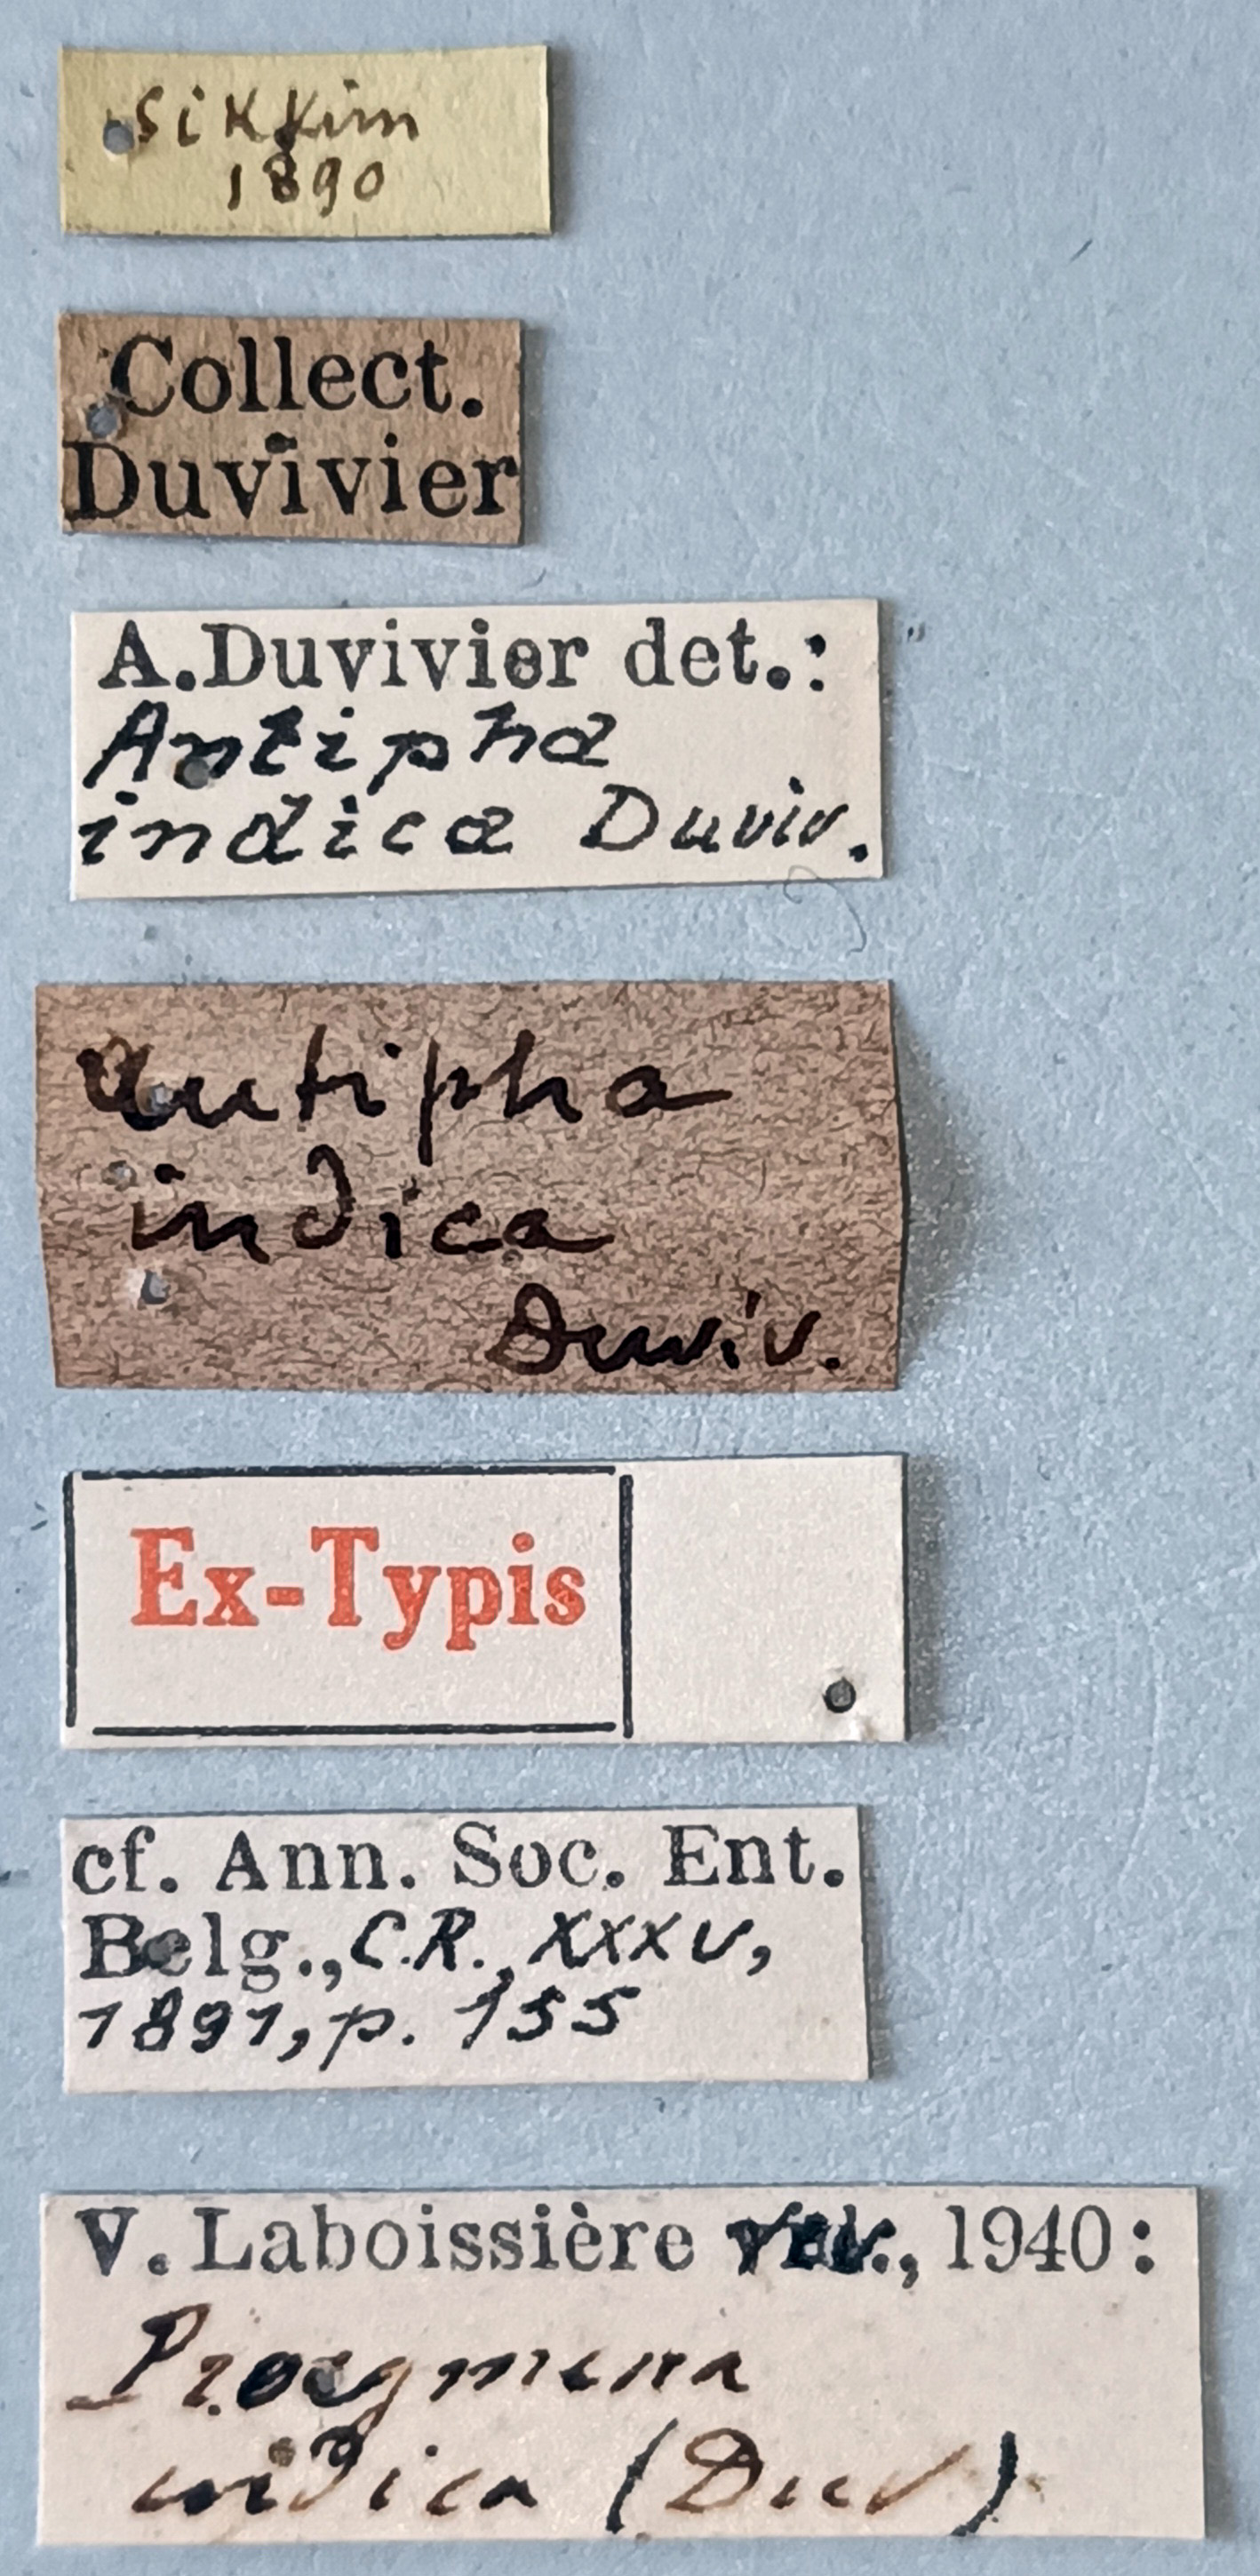 Sikkim
1890
Collect.
Duvivier
A.Duvivier det.:
Antipha
indica Duviv.
Antipha
indica
Duviv.
Ex-Typis
cf. Ann. Soc. Ent.
Belg., C.R., XXXV,
1891, p. 155
V. Laboissière rev., 1940:
indica (Duv)